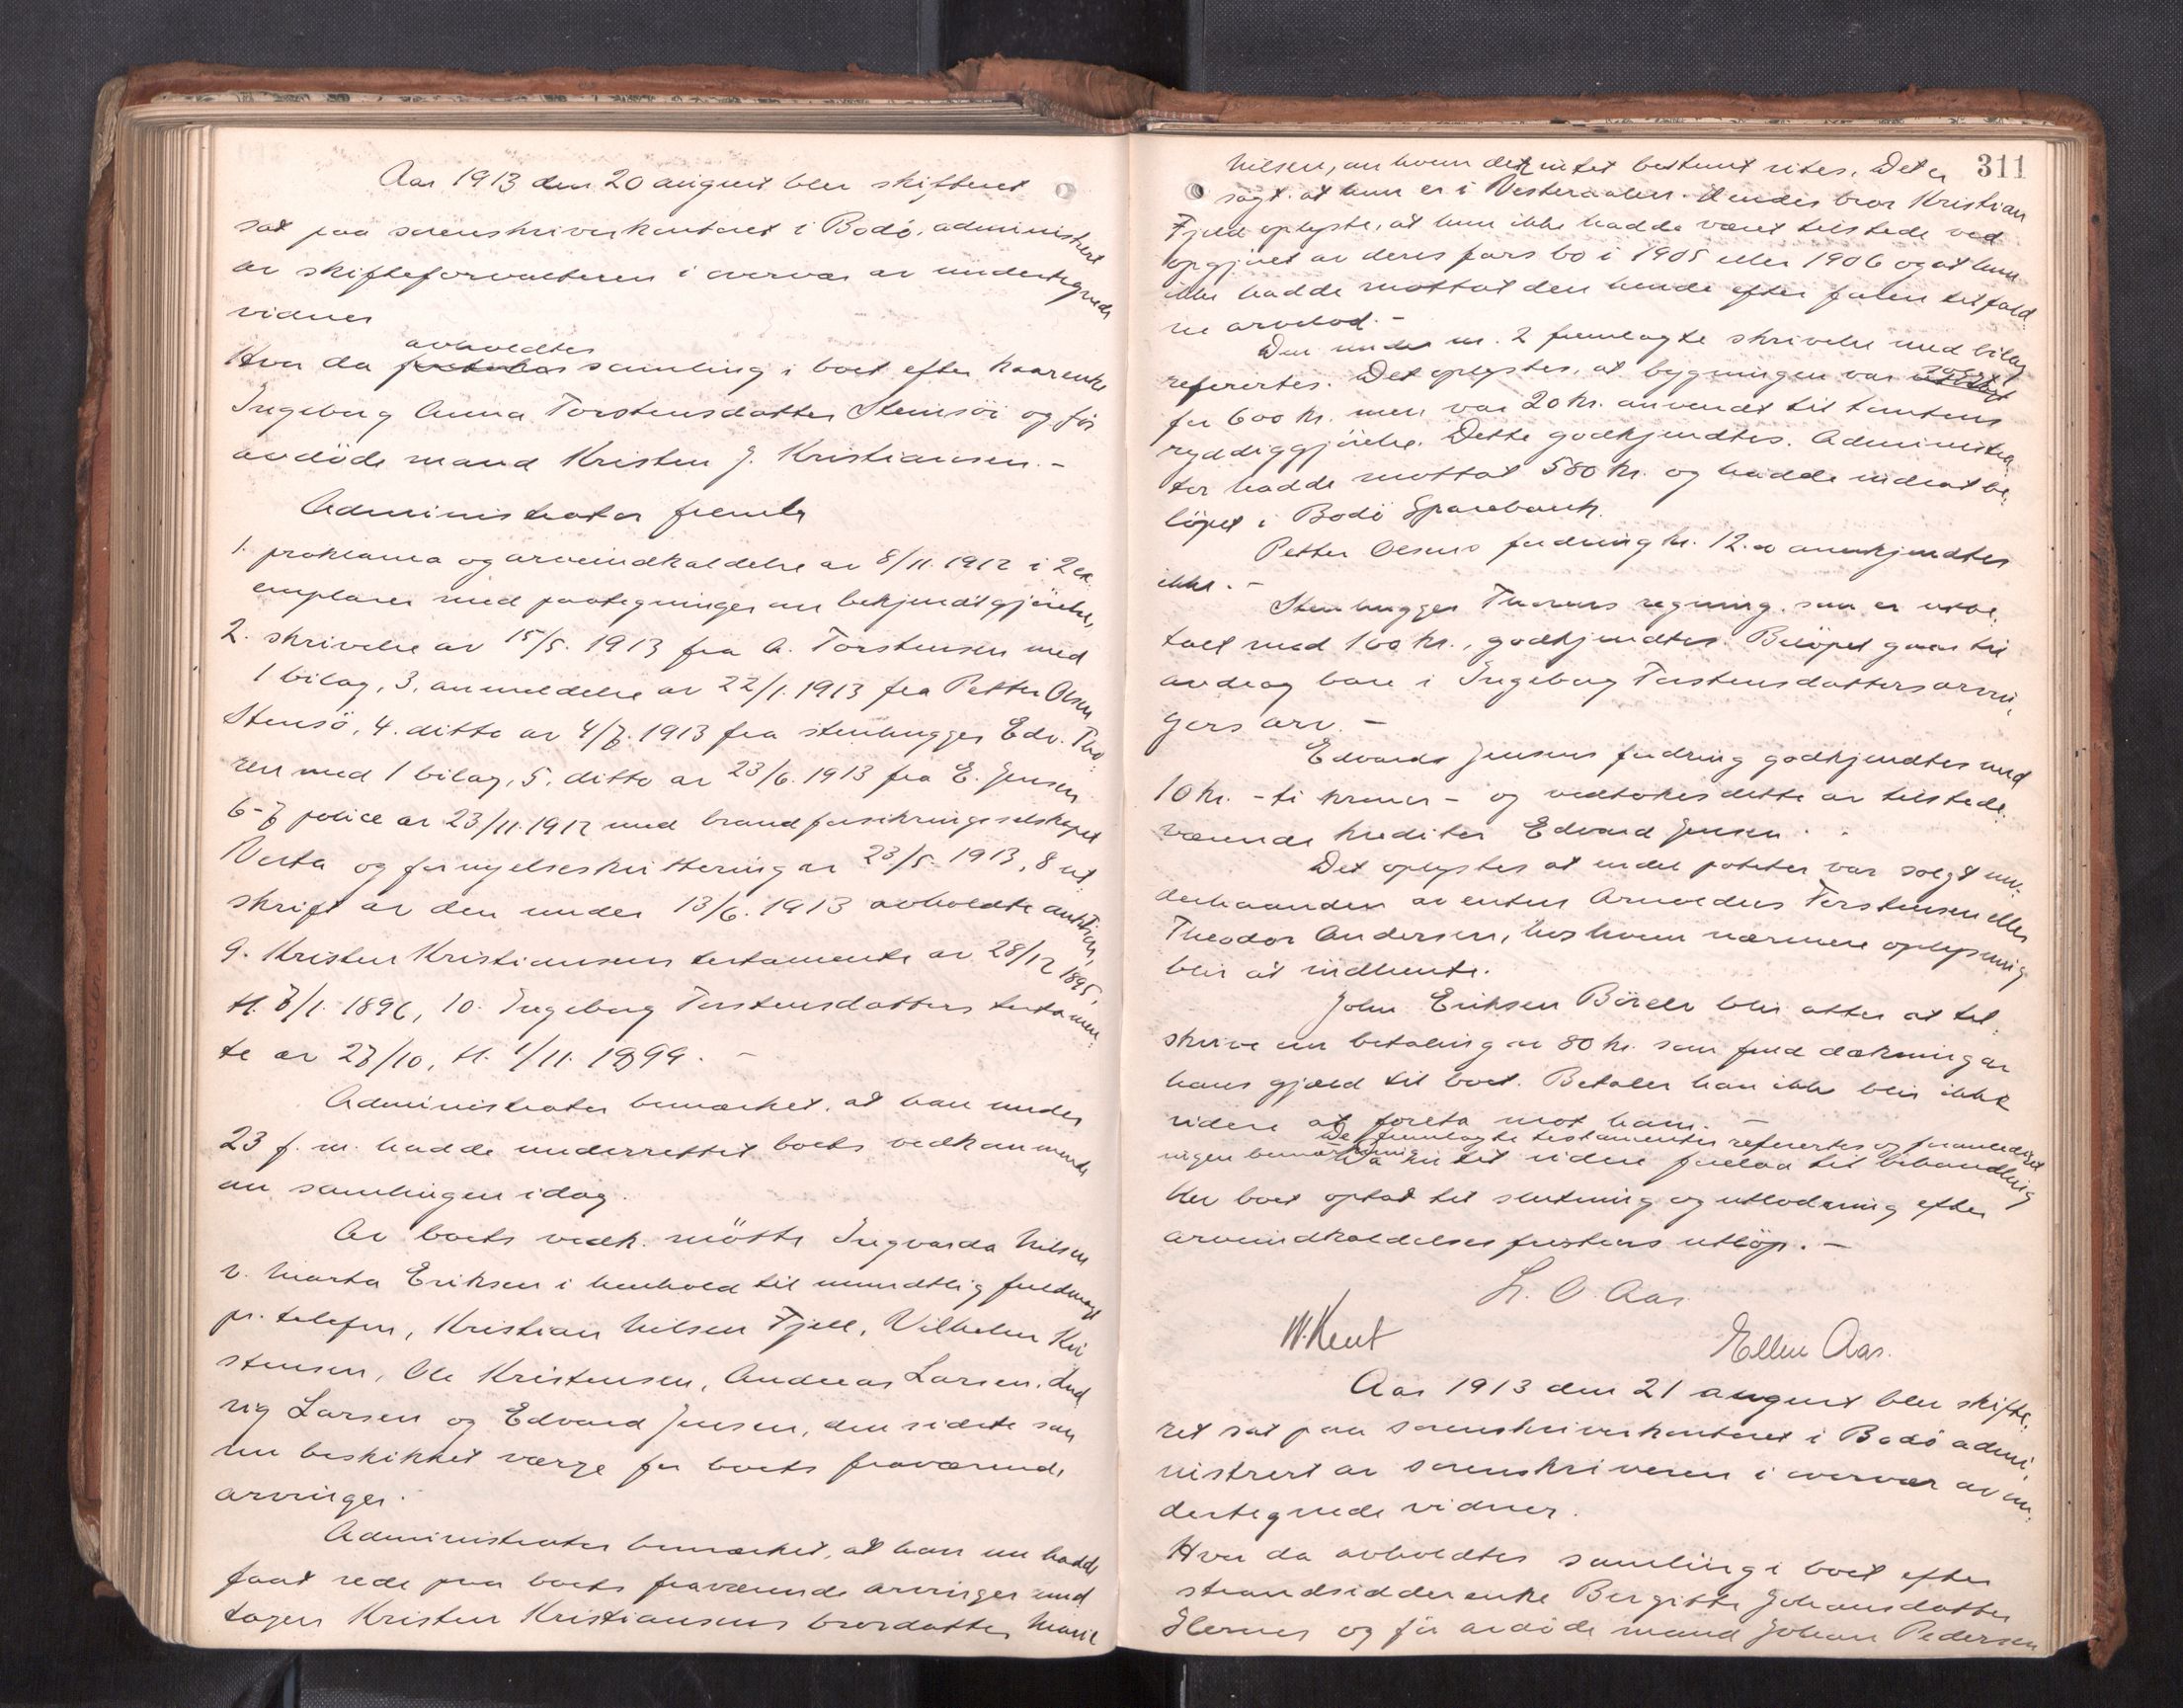 Aar 1913 den 20 august blev skifteret
sat paa sorenskriverkontoret i Bodö, administrert
av skifteforvalteren i overvær av undertegnede
vidner
avholdtes
Hvor da foretokes samling i boet efter kaarenke
Ingeborg Anna Torstensdatter Stensö og för
avdöde mand Kristen J. Kristiansen.-
Administrator fremla
1. proklama og arveindkaldelse av 8/11. 1912 i 2 ex
emplarer med paategninger om bekjendtgjörelse,
2. skrivelse av 15/5. 1913 fra A. Torstensen med
1 bilag, 3. anmeldelse av 22/1. 1913 fra Petter Olsen
Stensö, 4. ditto av 4/7. 1913 fra stenhugger Edv. Tho-
ren med 1 bilag, 5. ditto av 23/6. 1913 fra E. Jensen
6-7 police av 23/11. 1912 med brandforsikringsselskapet
Vesta og fornyelseskvittering av 23/5. 1913, 8 ut-
skrift av den under 13/6. 1913 avholdte auktion,
9. Kristen Kristiansens testamente av 28/12 1895,
tl. 7/1. 1896, 10. Ingeborg Torstensdatters testamen-
te av 27/10, tl. 1/11. 1899. -
Administrator bemærket, at han under
23 f. m. hadde underrettet boets vedkommende
om samlingen idag.
Av boets vedk. mötte Ingvarda Nilsen
v. Marta Eriksen i henhold til mundtlig fuldmagt
pr. telefon, Kristian Nilsen Fjell, Vilhelm Kri
stensen, Ole Kristensen, Andreas Larsen, Lud
vig Larsen og Edvard Jensen, den sidste som
nu beskikket værge for boets fraværende
arvinger.
Administrator bemærket, at han nu hadde
faat rede paa boets fraværende arvinger und
tagen Kristen Kristiansens brordatter Marie
311
Nilsen, om hvem der intet bestemt vites. Det er
sagt at hun er i Vesteraalen. Hendes bror Kristian
Fjeld oplyste, at hun ikke hadde været tilstede ved
opgjöret av deres fars bo i 1905 eller 1906 og at hun
ikke hadde mottat den hende efter faren tilfald
ne arvelod.-
Den under nr. 2 fremlagte skrivelse med bilag
refertes. Det oplystes, at bygningen var solgt
for 600 kr. men var 20 kr. anvendt til tomtens
ryddiggjörelse. Dette godkjendtes. Administra
tor hadde mottat 580 kr. og hadde indsat be-
löpet i Bodö Sparebank.
Petter Olsens fordring kr. 12.00 anerkjendtes
ikke.-
Stenhugger Thorens regning, som er utbe-
talt med 100 kr., godkjendtes. Belöpet gaar til
avdrag bare i Ingeborg Torstensdatters arvin-
gers arv. -
Edvards Jensens fordring godkjendtes med
10 kr. - ti kroner - og vedtokes dette av tilstede-
værende kreditor Edvard Jensen.
Det oplystes at endel poteter var solgt un-
derhaanden av enten Arnoldus Torstensen eller
Theodor Andersen, hos hvem nærmere oplysning
blir at indhente.
John Eriksen Börelv blir atter at til-
skrive om betaling av 80 kr. som fuld dækning av
hans gjæld til boet. Betaler han ikke blir ikke
videre at foreta mot ham. -
De fremlagte testamenter refertes og foranlediget
ingen bemærkning
Da intet videre forelaa til behandling
blev boet optat til slutning og utlodning efter
arveindkaldelsesfristens utlöp. -
L. O. Aas
W. Kent Ellen Aas.
Aar 1913 den 21 august blev skifte-
ret sat paa sorenskriverkontoret i Bodö admi-
nistrert av sorenskriveren i overvær av un-
dertegnede vidner.
Hvor da avholdtes samling i boet efter
strandsidderenke Bergitte Johansdatter
Hernes og för avdöde mand Johan Pedersen